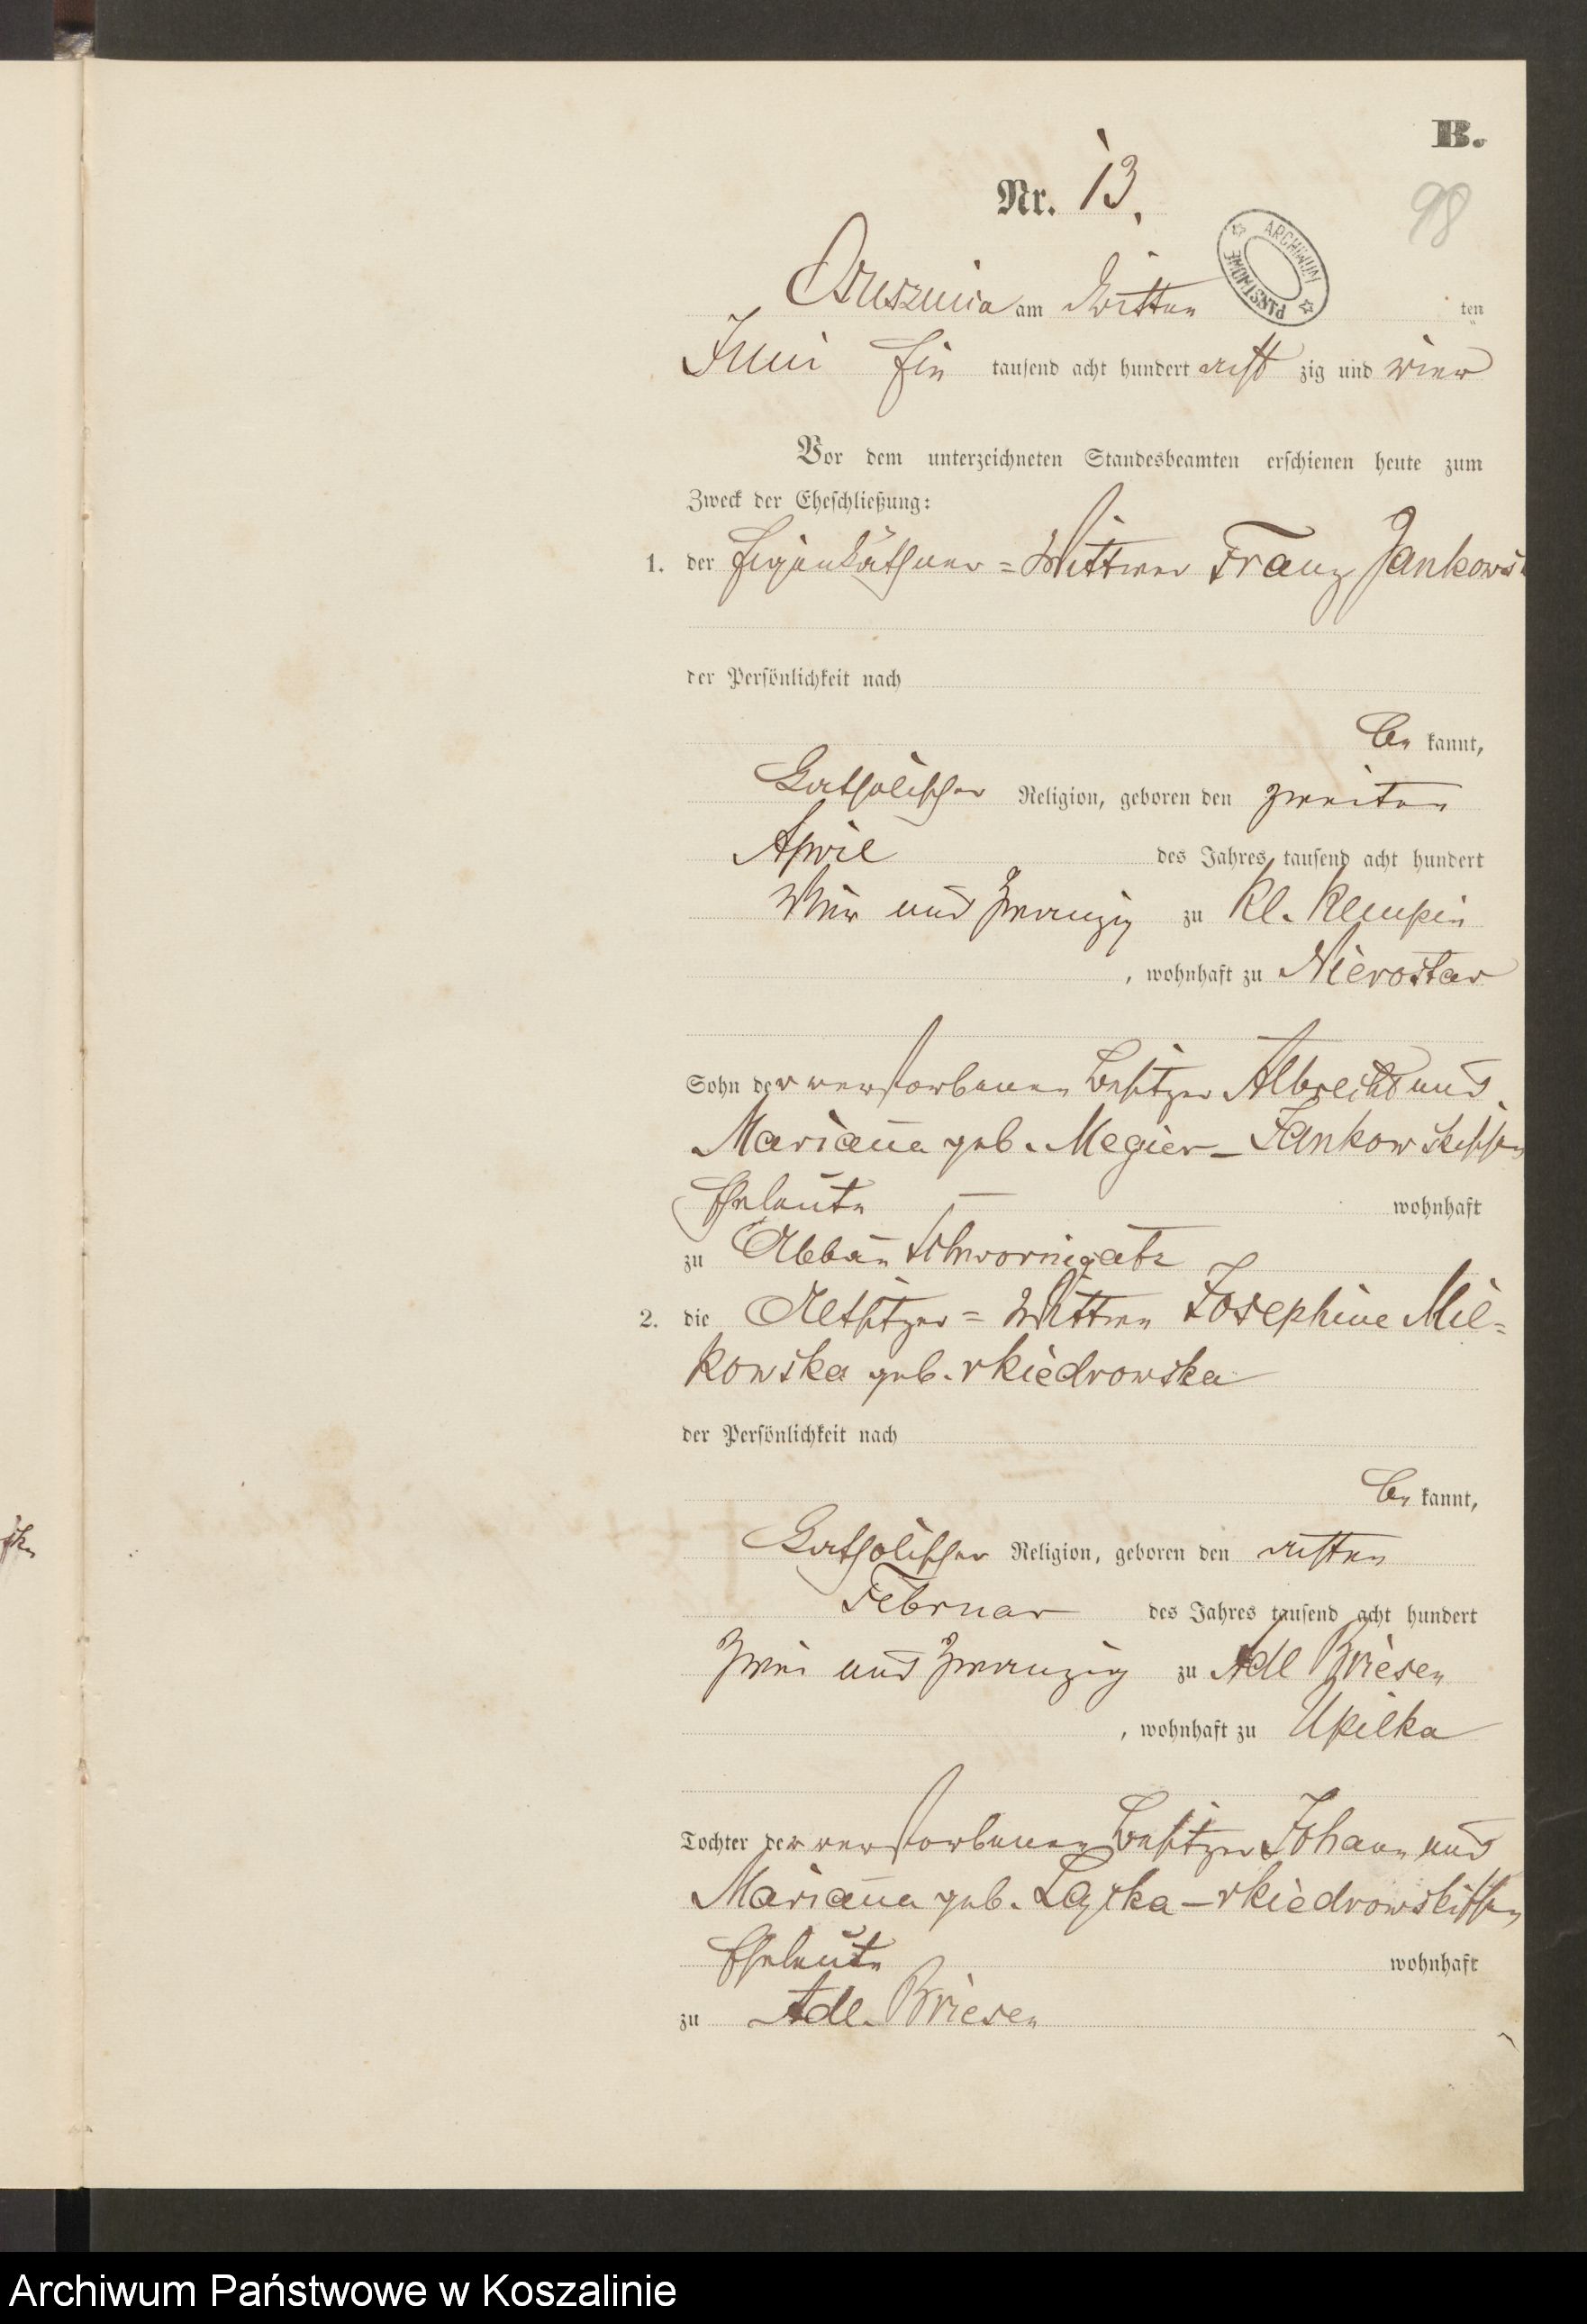 B.
Nr. 13.
98
ARCHIWUM PAŃSTWOWE
Osusznica am Dritten ten
Juni Ein tausend acht hundert acht zig und vier
Vor dem unterzeichneten Standesbeamten erschienen heute zum
Zweck der Eheschließung:
1. der Eigenkäthner = Wittwer Franz Jankows
der Persönlichkeit nach
be kannt,
Katholischer Religion, geboren den zweiten
April des Jahres tausend acht hundert
Vier und Zwanzig zu Kl. Klempin
, wohnhaft zu Nierostaw
Sohn der verstorbenen Besitzer Albrecht und
Mariana geb. Megier - Jankowskischen
Eheleute — wohnhaft
zu Abbau
2. die Altsitzer = Wittwe Josephine Mil=
kowska geb. v Kiedrowska
der Persönlichkeit nach
be kannt,
Katholischer Religion, geboren den achten
Februar des Jahres tausend acht hundert
Zwei und Zwanzig zu Adl Briesen
, wohnhaft zu Upilka
Tochter der verstorbenen Besitzer Johann und
Mariana geb. - v Kiedrowskischen
Eheleute wohnhaft
zu Adl. Briesen
Archiwum Państwowe w Koszalinie